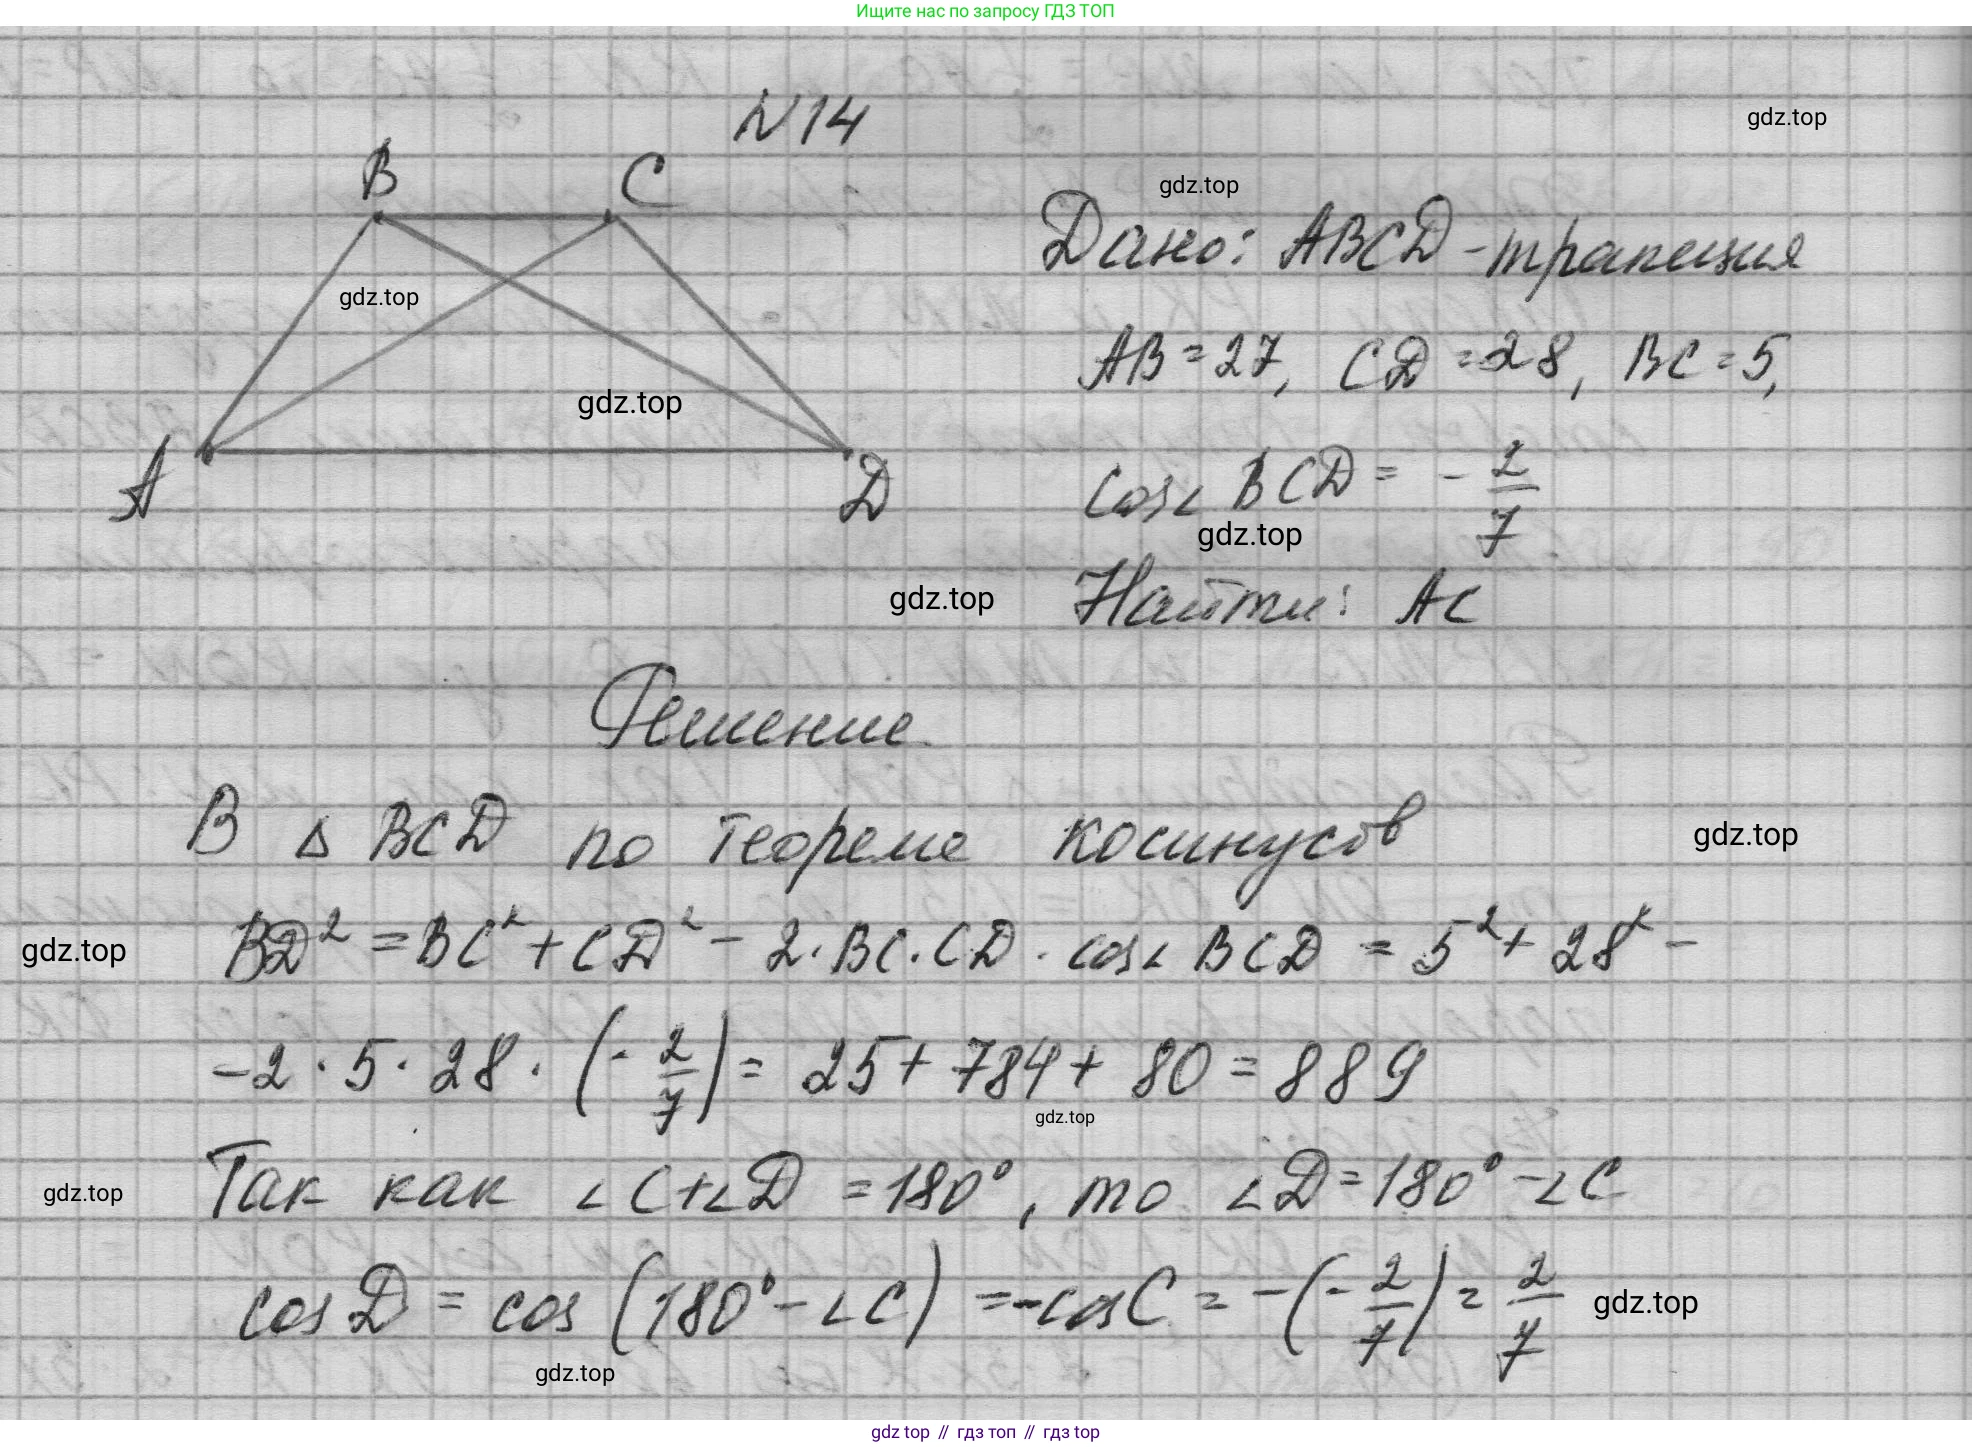 Ищите нас по запросу ГДЗ ТОП
N14
gdz.top
B C
gdz.top
Дано: ABCD - трапеция
gdz.top
AB = 27, CD = 28, BC = 5,
gdz.top
A D
cos∠ BCD = - 2/7
gdz.top
gdz.top
Найти: AC
Решение.
В △ BCD по теореме косинусов
gdz.top
gdz.top
BD² = BC² + CD² - 2·BC·CD · cos∠ BCD = 5² + 28² -
-2 · 5 · 28 · (- 2/7) = 25 + 784 + 80 = 889
gdz.top
Так как ∠C+∠D = 180°, то ∠D = 180° - ∠C
gdz.top
cos D = cos (180° - ∠C) = -cos C = -(- 2/7) = 2/7
gdz.top
gdz.top
gdz.top // гдз топ // гдз top